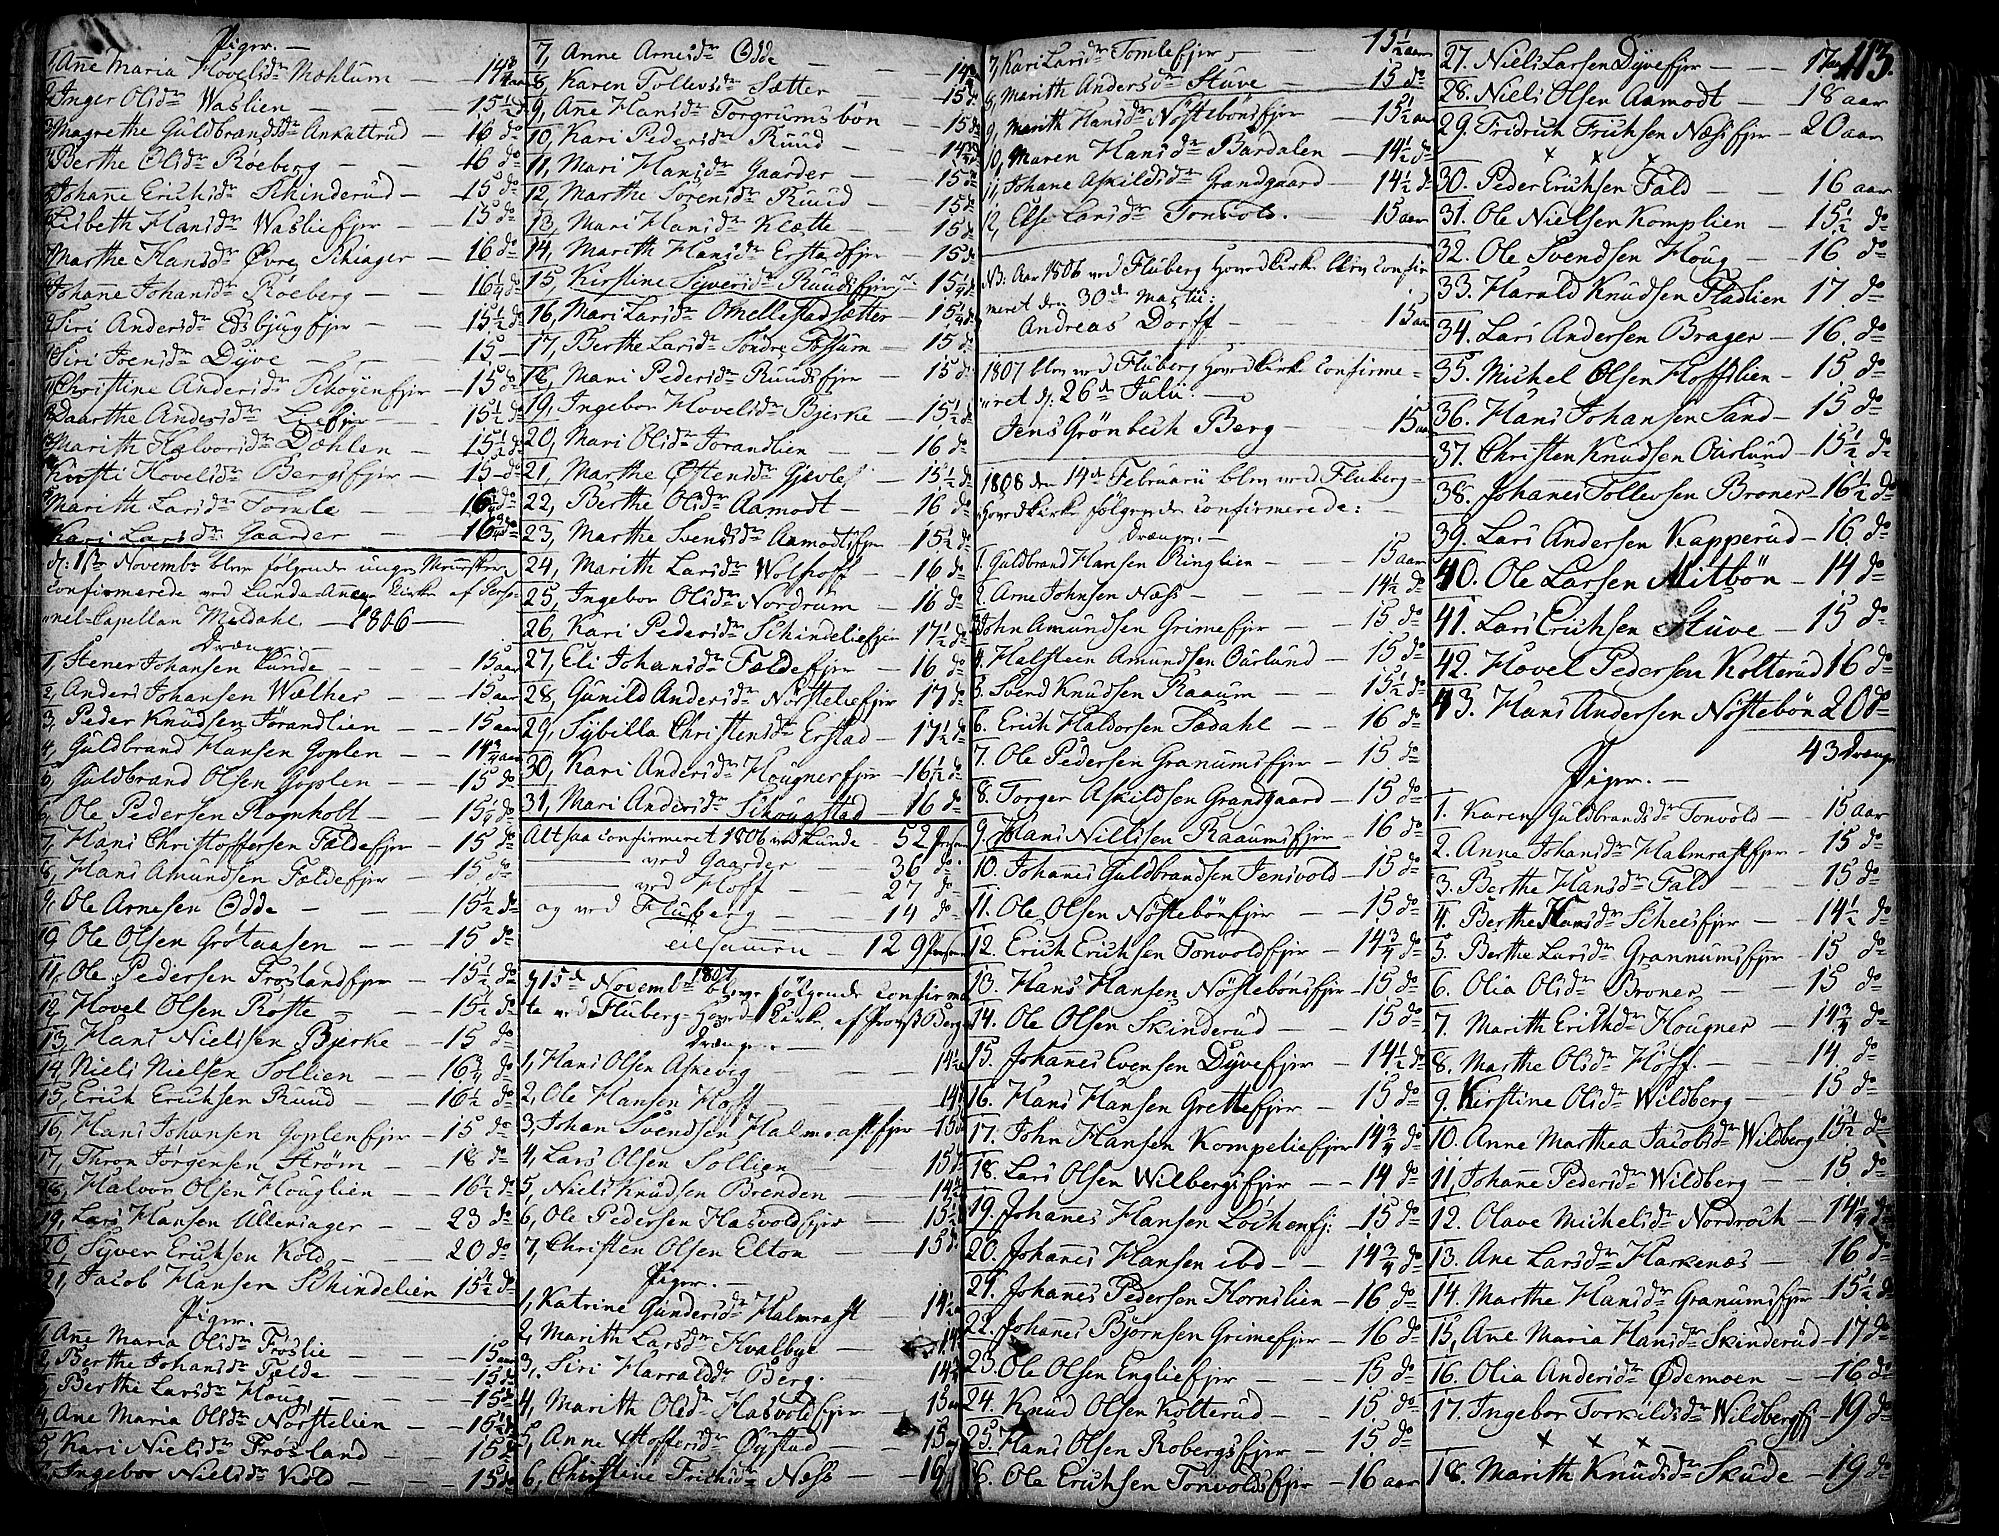 Piger. —
1, Ane Maria Hovelsdr Mohlum — 14 3/4 aar
2, Inger Olsdr Waslien — 15 1/2 do
3, Magrethe Guldbrandsdr Ankattrud — 16 do
4, Berthe Olsdr Roeberg — 16 do
5, Johane Erichsdr Schinderud — 15 do
6, Lisbeth Hansdr Wasliefjer — 15 do
7, Marthe Hansdr Øvre Schiager — 16 do
8, Johane Johansdr Röeberg — 16 1/4 do
9, Siri Andersdr Edsbjugfjer — 15 1/2 do
10, Siri Joensdr Dyve — 15 —
11, Christine Andersdr Schöyenfjer — 15 do
12, Daarthe Andersdr — 15 1/2 do
13, Marith Halvorsdr Dæhlen — 15 1/2 do
14, Kirsti Hovelsdr Bergsfjer — 15 do
15, Marith Larsdr Tomle — 16 1/4 do
16, Kari Larsdr Gaarder — 16 3/4 do
d: 1ste Novembr blev følgende unge Mennesker
confirmerede ved Lunde Annex Kirke af Perso-
nel-Capellan Medahl. — 1806 —
Drænge
1, Stener Johansen Lunde — 15 aar
2, Anders Johansen Wælher — 15 aar
3, Peder Knudsen Jörandlien — 15 aar
4, Guldbrand Hansen Goplen — 14 3/4 aar
5, Guldbrand Olsen Goplen — 15 do
6, Ole Pedersen Rognholt — 15 1/4 do
7, Hans Christoffersen Faldefjer — 15 do
8, Hans Amundsen Faldefjer — 15 do
9, Ole Arnesen Odde — 15 1/2 do
10, Ole Olsen Grötaasen — 15 do
11, Ole Pedersen Fröslandfjer — 15 1/2 do
12, Hovel Olsen Roste — 15 1/2 do
13, Hans Nielsen Bjerke — 15 do
14, Niels Nielsen Sollien — 16 3/4 do
15, Erich Erichsen Ruud — 16 1/2 do
16, Hans Johansen Goplenfjer — 15 do
17, Thron Jörgensen Ström — 18 do
18, Halvor Olsen Houglien — 16 1/2 do
19, Lars Hansen Ullensager — 23 do
20, Syver Erichsen Kold — 20 do
21, Jacob Hansen Schindelien 15 1/2 do
Piger. —
1, Ane Maria Olsdr Fröslie — 15 aar
2, Berthe Johansdr Falde — 15 do
3, Berthe Larsdr Houg — 15 do
4, Ane Maria Olsdr Nörstelien — 15 1/2 do
5, Kari Nielsdr Frösland — 15 do
6, Ingebor Nielsdr Kold — 15 do
7, Anne Arnesdr Odde — 14 1/2
8, Karen Tollevsdr Sætter — 15 do
9, Ane Hansdr Torgrumsbön — 15 do
10, Kari Pedersdr Ruud — 14 3/4
11, Mari Hansdr Gaarder — 15 do
12, Marthe Sörensdr Ruud — 15 do
13, Mari Hansdr Klætte — 15 do
14, Marith Hansdr Erstadfjer — 15 do
15, Kirstine Syversdr Ruudsfjer — 15 1/4 do
16, Mari Larsdr Omellestadsætter — 15 1/4 do
17, Berthe Larsdr Söndre Fossum — 15 do
18, Mari Pedersdr Ruudsfjer — 15 do
19, Ingebor Hovelsdr Bjerke — 15 1/2 do
20, Mari Olsdr Jorandlien — 16 do
21, Marthe Östensdr Gjevles — 15 1/2 do
22, Berthe Olsdr Aamodt — 16 do
23, Marthe Svensdr Aamodtsfjer — 15 1/2 do
24, Marith Larsdr Wolhoff — 16 do
25, Ingebor Olsdr Nordrum — 16 do
26, Kari Pedersdr Schindeliefjer 17 1/2 do
27, Eli Johansdr Faldefjer — 16 do
28, Gunild Andersdr Nörsteliefjer 17 do
29, Sybilla Christensdr Erstad — 17 1/2 do
30, Kari Andersdr Hougnerfjer — 16 1/2 do
31, Mari Andersdr Schougstad — 16 do
Altsaa confirmeret 1806 ved Lunde — 52 Personer
ved Gaarder — 36 do
ved Hoff — 27 do
og ved Fluberg — 14 do
tilsamen — 129 Personer
d 15de Novembr 1807 bleve følgende Confirma-
te ved Fluberg-Hoved-Kirke af Provst Berg
Drænge. —
1, Hans Olsen Askevig — 14 1/2
2, Ole Hansen Hoff — 14
3, Johan Svendsen Halmrastfjer — 15 do
4, Lars Olsen Sollien — 15 do
5, Niels Knudsen Brenden — 14 1/2
6, Ole Pedersen Hasvoldfjer — 15 1/2
7, Christen Olsen Elton — 15 do
Piger. —
1, Katrine Gundersdr Halmrast — 14 1/2 a
2, Marith Larsdr Hvalbye — 14
3, Siri Harraldsdr Berg. — 14
4, Marith Olsdr Hasvoldsfjer — 15 aar
5, Anne Stoffersdr Öystad — 15
6, Christine Frichsdr Næss — 16
7, Kari Larsdr Tomlefjer — 15 1/2 aar
8, Marith Andersdr Stuve — 15 do
9, Marith Hansdr Nöstebönsfjer — 15 1/2 aar
10, Maren Hansdr Bardalen — 14 1/2 do
11, Johane Askildsdr Grandgaard — 14 1/2 do
12, Else Larsdr Tonvold. — 15 aar
NB: Aar 1806 ved Fluberg Hovedkirke blev Confir
meret den 30de Martii:
Andreas Dorff — 15 aar
1807 blev ved Fluberg Hovedkirke Confirme-
ret d. 26de Julii: —
Jens Grönbech Berg — 15 aar
1808 den 14de Februarii blev ved Fluberg-
Hovedkirke følgende Confirmerede: —
Drænge. —
1. Guldbrand Hansen Ringlien — 15 aar
2. Arne Johnsen Næss — 14 1/2 do
3. John Amundsen Grimefjer — 15 do
4. Halsteen Amundsen Ourlund — 15 do
5. Svend Knudsen Raaum — 15 1/2 do
6. Erich Haldorsen Sædahl — 16 do
7. Ole Pedersen Granumsfjer — 15 do
8. Torger Askildsen Grandgaard — 15 do
9. Hans Nillsen Raaumsfjer — 16 do
10. Johannes Guldbrandsen Jensvold — 15 do
11. Ole Olsen Nöstebönfjer — 15 do
12. Erich Erichsen Tonvoldfjer — 14 3/4 do
13. Hans Hansen Nöstebönsfjer — 15 do
14. Ole Olsen Skinderud — 15 do
15. Johannes Evensen Dyvefjer — 14 1/2 do
16. Hans Hansen Grettefjer — 15 do
17. John Hansen Kompeliefjer 14 3/4 do
18. Lars Olsen Wilbergsfjer — 14 do
19. Johannes Hansen Lochenfj: — 15 do
20. Johannes Hansen ibd — 14 3/4 do
21. Johannes Pedersen Hornslien — 16 do
22. Johannes Bjornsen Grimefjer — 16 do
23. Ole Olsen Engliefjer — 15 do
24. Knud Olsen Kolterud — 15 do
25. Hans Olsen Robergsfjer — 15 do
26. Ole Erichsen Tonvoldsfjer — 16 aar
113.
27. Niels Larsen Dyvefjer — 17 aar
28. Niels Olsen Aamodt — 18 aar
29. Fridrich Frichsen Næssfjer — 20 aar
x x x
30. Peder Erichsen Fald — 16 aar
31. Ole Nielsen Komplien — 15 1/2 do
32. Ole Svendsen Houg — 16 do
33. Harald Knudsen Fladlien 17. do
34. Lars Andersen Brager — 16. do
35. Michel Olsen Hoffslien — 15 do
36. Hans Johansen Sand — 15 do
37. Christen Knudsen Ourlund — 15 1/2 do
38. Johannes Tollevsen Broner — 16 1/2 do
39. Lars Andersen Kapperud — 16 do
40. Ole Larsen Mitbön — 14 do
41. Lars Erichsen Stuve — 15 do
42. Hovel Pedersen Kolterud 16 do
43. Hans Andersen Nöstebön 20 do
43 Drænge
Piger. —
1. Karen Guldbrandsdr Tonvold — 15 aar
2. Anne Johansdr Halmrastfjer — 15 do
3. Berthe Hansdr Fald — 15 do
4. Berthe Hansdr Scheesfjer — 14 1/2 do
5. Berthe Larsdr Grannumsfjer — 15 do
6. Olia Olsdr Broner — 15 do
7. Marith Erichsdr Hougner — 14 3/4 do
8. Marthe Olsdr Hoff. — 14. do
9. Kirstine Olsdr Wildberg — 15 do
10. Anne Marthea Jacobsdr Wildberg 15 1/2 do
11, Johane Pedersdr Wildberg — 15. do
12. Olave Michelsdr Nordroch — 14 1/4 do
13. Ane Larsdr Harkenæs — 16 do
14. Marthe Hansdr Granumsfjer — 15 1/2 do
15, Ane Maria Hansdr Skinderud — 17 do
16. Olia Andersdr Ødemoen — 16 do
17. Ingebor Torkildsdr Wildbergsfj — 19 do
x x x
18. Marith Knudsdr Skude — 19 do